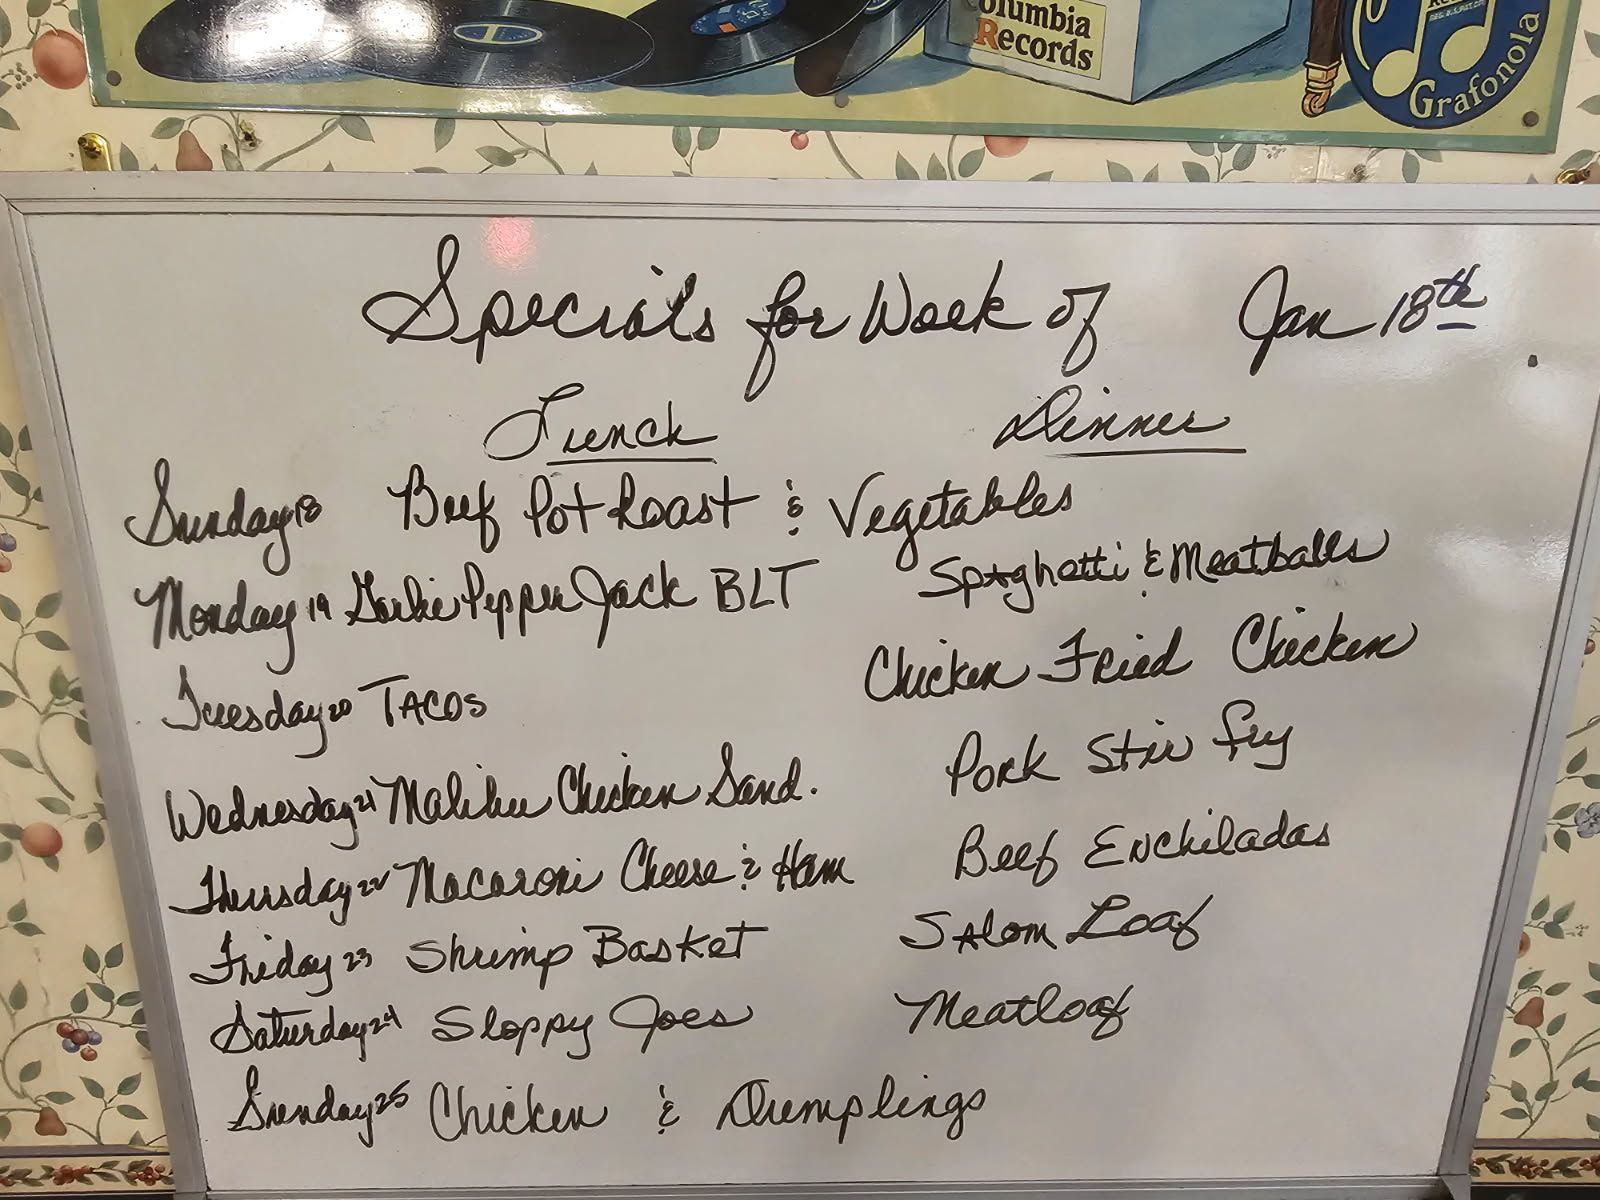 Columbia
Records
Grafonola
Specials for Week of Jan 18th
Lunch Dinner
Sunday 18 Beef Pot Roast & Vegetables
Monday 19 Garlic Pepper Jack BLT Spaghetti & Meatballs
Tuesday 20 TACOS Chicken Fried Chicken
Wednesday 21 Malibu Chicken Sand. Pork Stir Fry
Thursday 22 Macaroni Cheese & Ham Beef Enchiladas
Friday 23 Shrimp Basket Salom Loaf
Saturday 24 Sloppy Joes Meatloaf
Sunday 25 Chicken & Dumplings